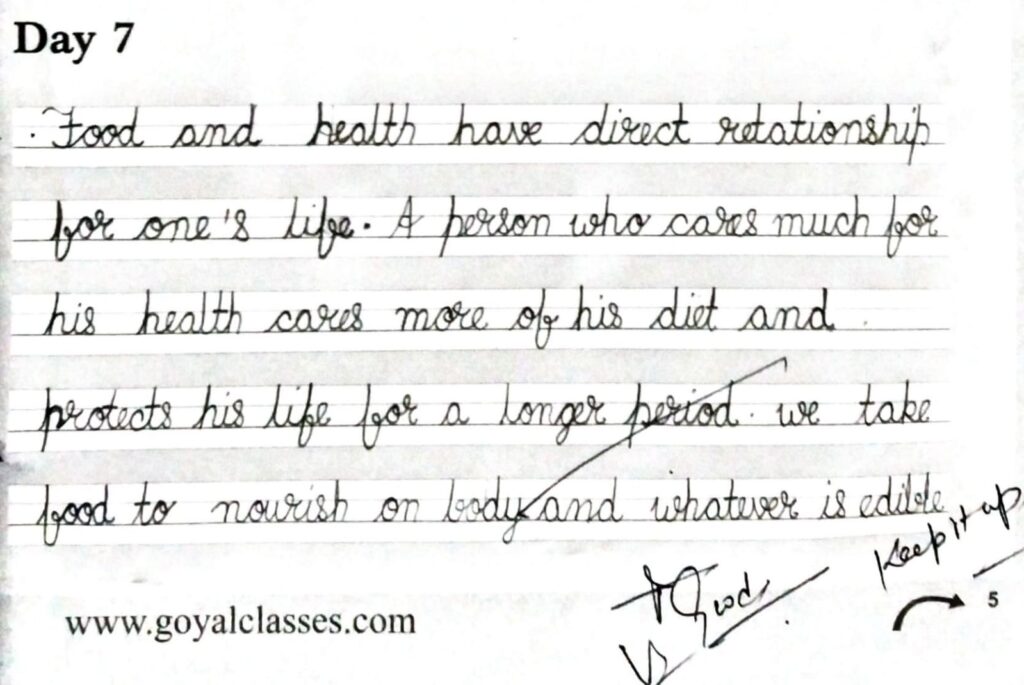 Day 7
Food and health have direct relationship
for one's life. A person who cares much for
his health cares more of his diet and
protects his life for a longer period. we take
food to nourish on body and whatever is edible
Keep it up
Good
www.goyalclasses.com
5